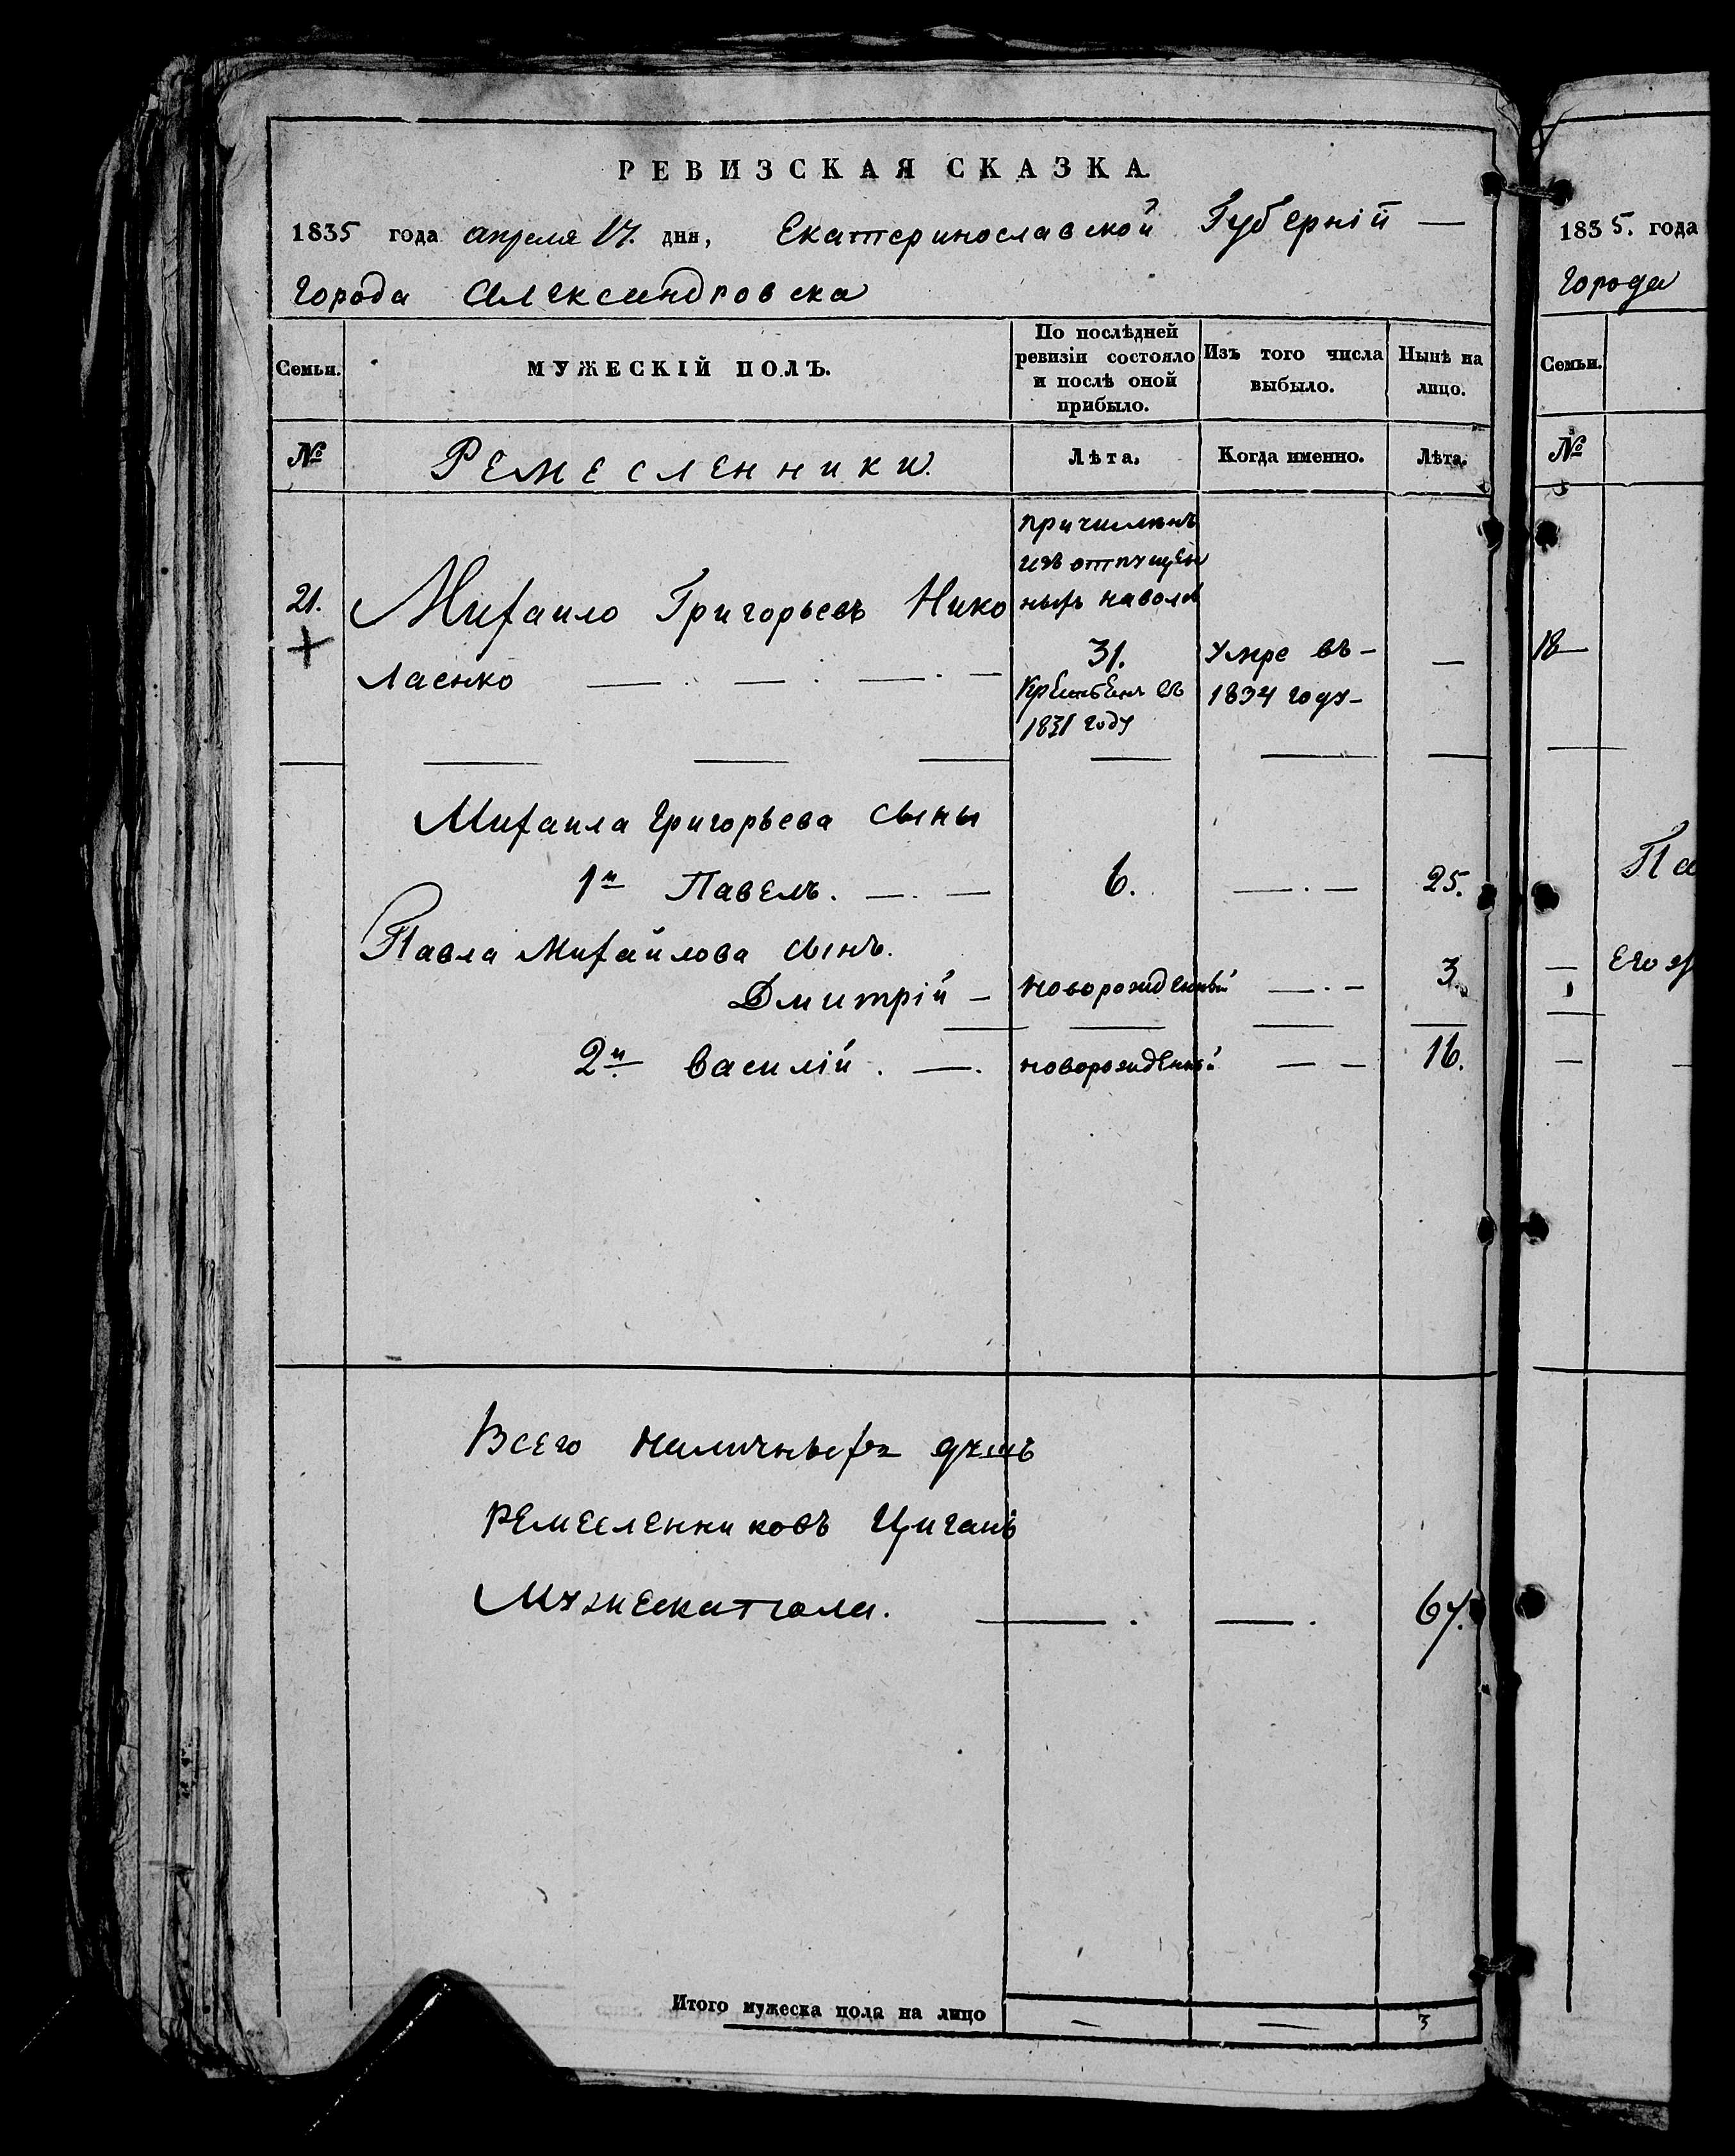 РЕВИЗСКАЯ СКАЗКА.
1835 года апреля 17. дня, Екатеринославской Губерніи —
города Александровска
Семьи.
МУЖЕСКІЙ ПОЛЪ.
По послѣдней ревизіи состояло и послѣ оной прибыло.
Изъ того числа выбыло.
Нынѣ на лицо.
№
Ремесленники.
Лѣта.
Когда именно.
Лѣта.
причисленъ
изъ отпущен
ныхъ наволю
21. Михаило Григорьевъ Нико
лаенко
31.
въ
1831 году
Умре въ
1834 году
—
Михаила Григорьева сыны
1й Павелъ. — . — 6. — . — 25.
Павла Михайлова сынъ.
Дмитрій — новорожденный — . — 3.
2й Василій . — . новорожденный — — 16.
Всего наличныхъ душъ
ремесленниковъ Циганъ
Мужеска пола. — . — . 67.
Итого мужеска пола на лицо — — 3
1835. года
города
Семьи.
№
18
Па
Его